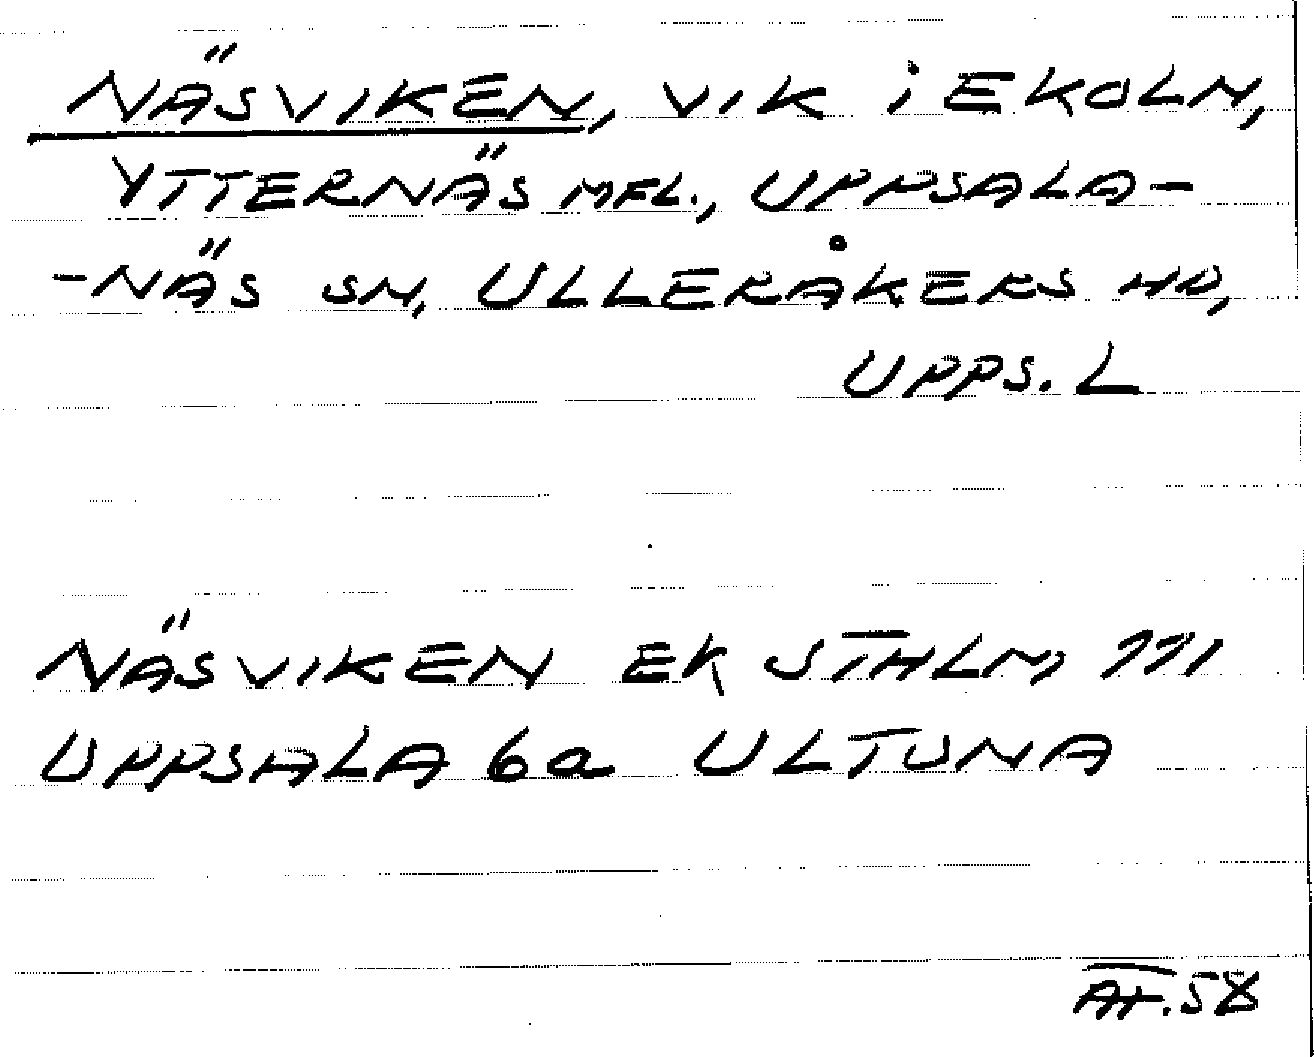 NÄSVIKEN, VIK i EKOLN,
YTTERNÄS MFL., UPPSALA-
-NÄS SN, ULLERÅKERS HD,
UPPS. L
NÄSVIKEN EK STHLM 111
UPPSALA 6a ULTUNA
AF. 58